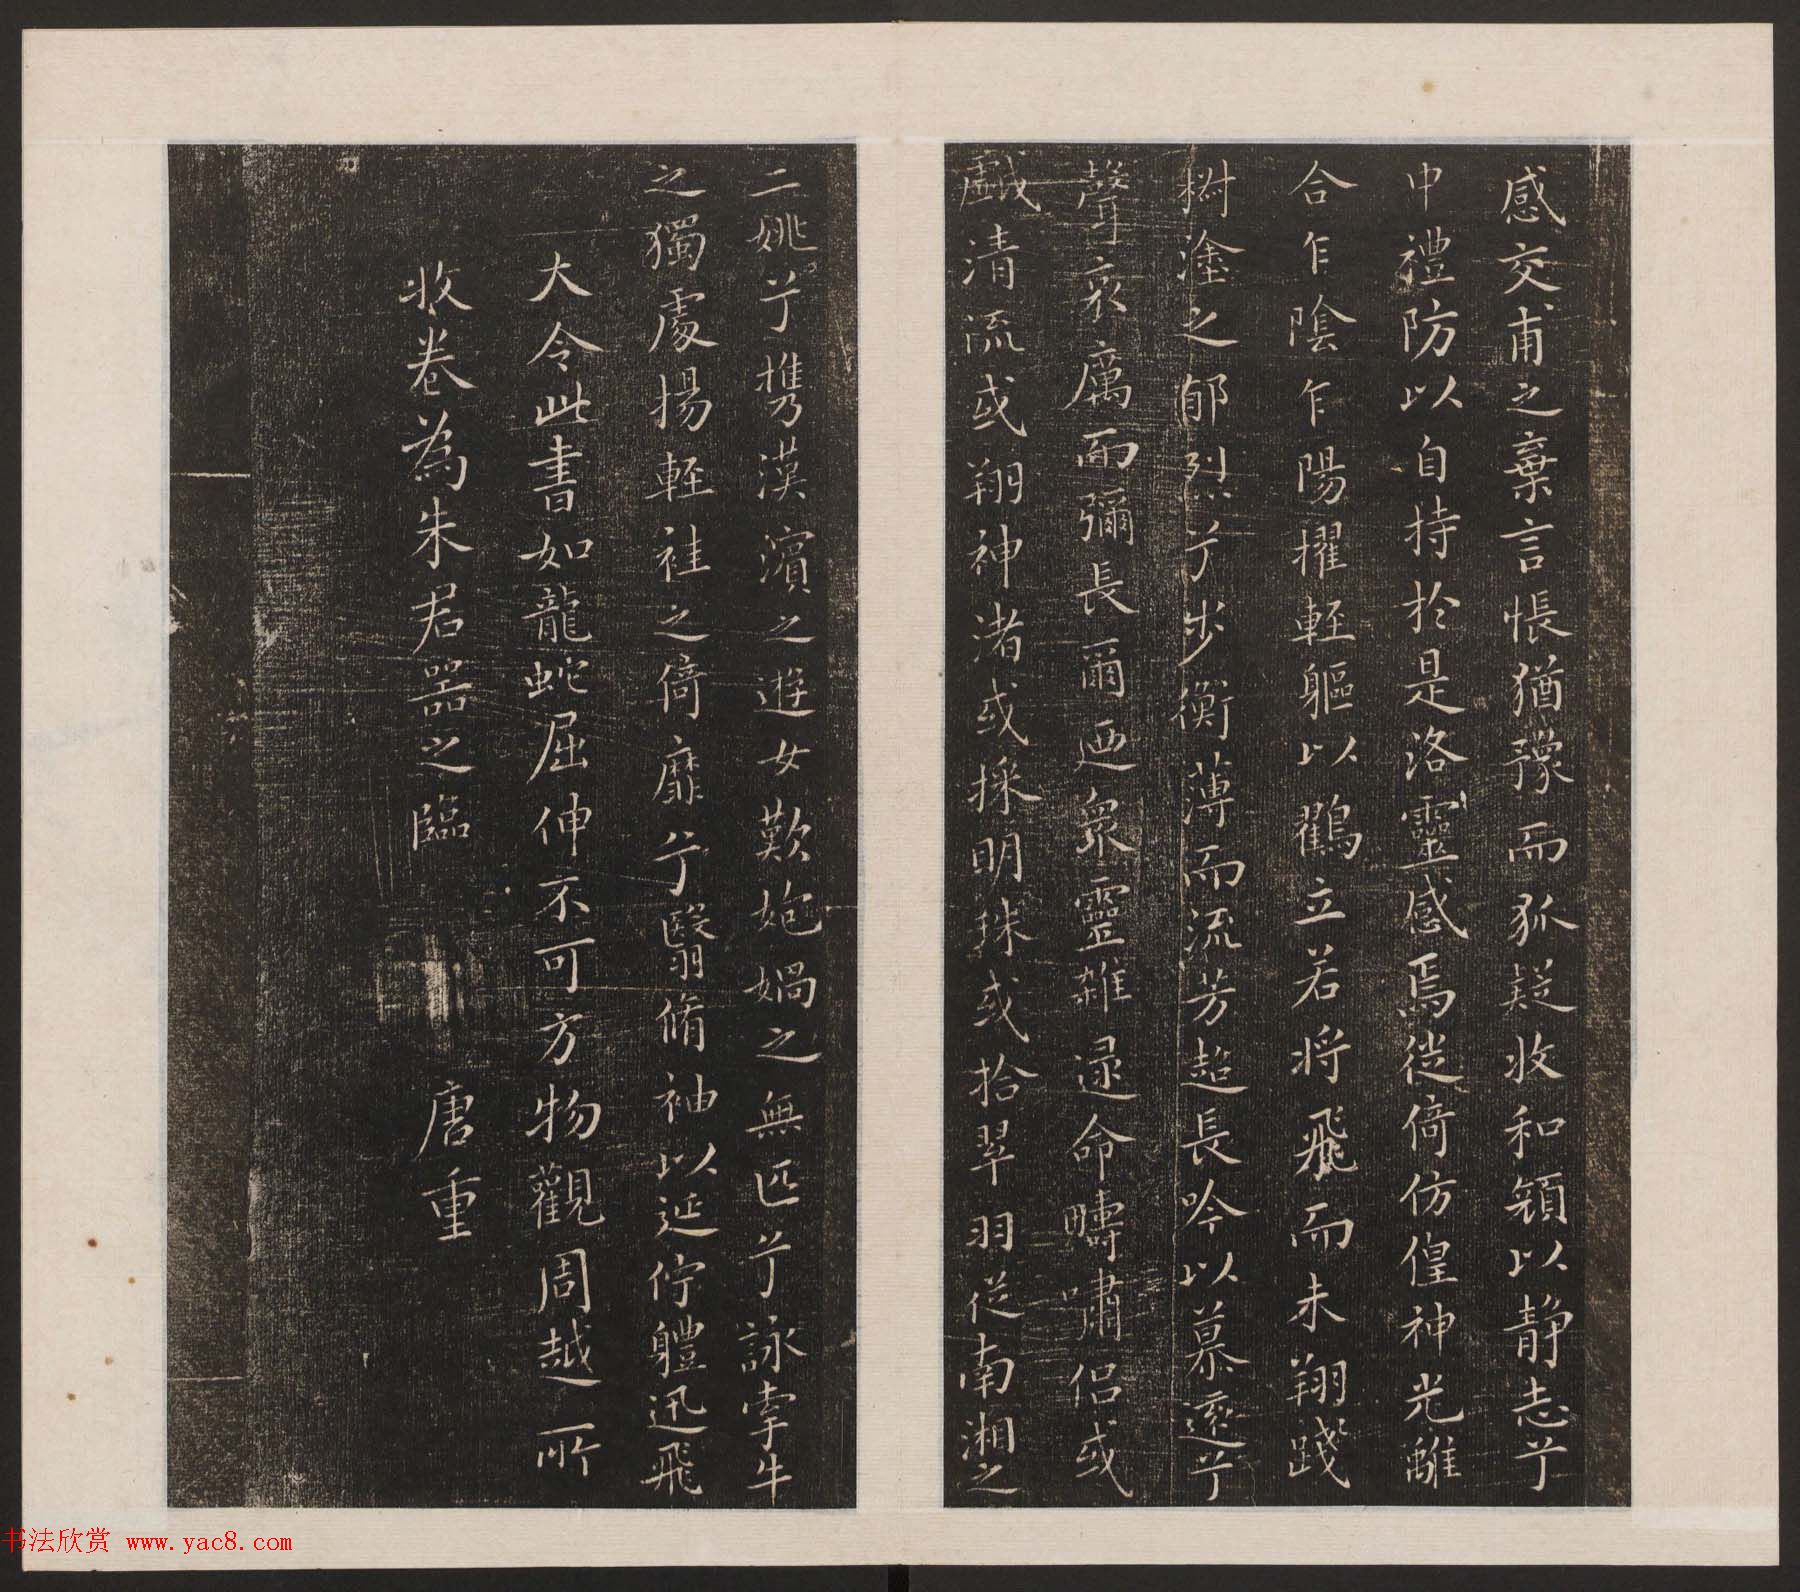 感交甫之棄言悵猶豫而狐疑收和顏以静志兮
申禮防以自持於是洛靈感焉徙倚仿偟神光離
合乍陰乍陽擢輕軀以鶴立若將飛而未翔踐
椒塗之郁烈兮步衡薄而流芳超長吟以慕遠兮
聲哀厲而彌長爾迺衆靈雜遝命疇嘯侶或
戲清流或翔神渚或採明珠或拾翠羽從南湘之
二姚兮携漢濱之遊女歎炮媧之無匹兮詠牽牛
之獨處揚輕袿之倚靡兮翳脩袖以延佇體迅飛
大令此書如龍蛇屈伸不可方物觀周越所
收卷為朱君器之臨 唐重
书法欣赏 www.yac8.com